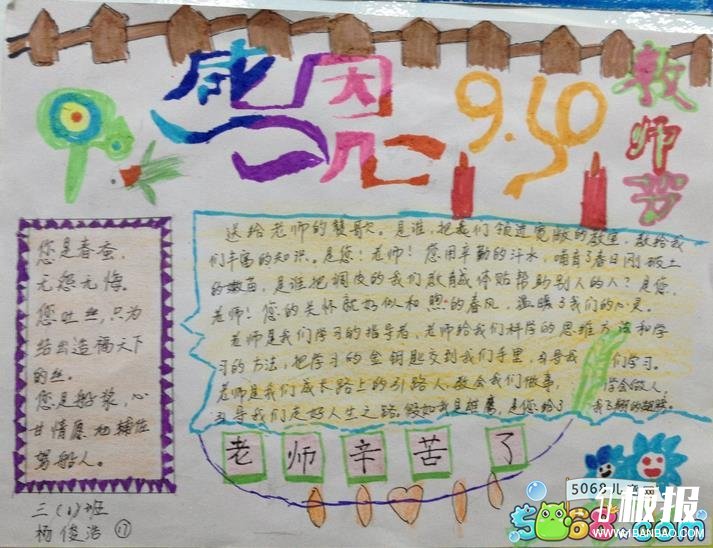 感恩 9.10 教师节
您是春蚕，
无怨无悔。
您吐丝，只为
结出造福天下
的丝。
您是船桨，心
甘情愿地辅佐
驾船人。
送给老师的赞歌。是谁，把我们领进宽敞的教室，教给我
们丰富的知识。是您！老师！您用辛勤的汗水，哺育了春日刚破土
的嫩苗，是谁把调皮的我们教育成体贴帮助别人的人？是您，
老师！您的关怀就好似和煦的春风，温暖了我们的心灵。
老师是我们学习的指导者，老师给我们科学的思维方法和学
习的方法，把学习的金钥匙交到我们手里，引导我们学习。
老师是我们成长路上的引路人，教会我们做事，学会做人，
引导我们走好人生之路。假如我是雄鹰，是您给了我飞翔的翅膀。
老师辛苦了
三(1)班
杨俊浩 17
5068儿童网
5068.com
板报
WWW.1BANBAO.COM